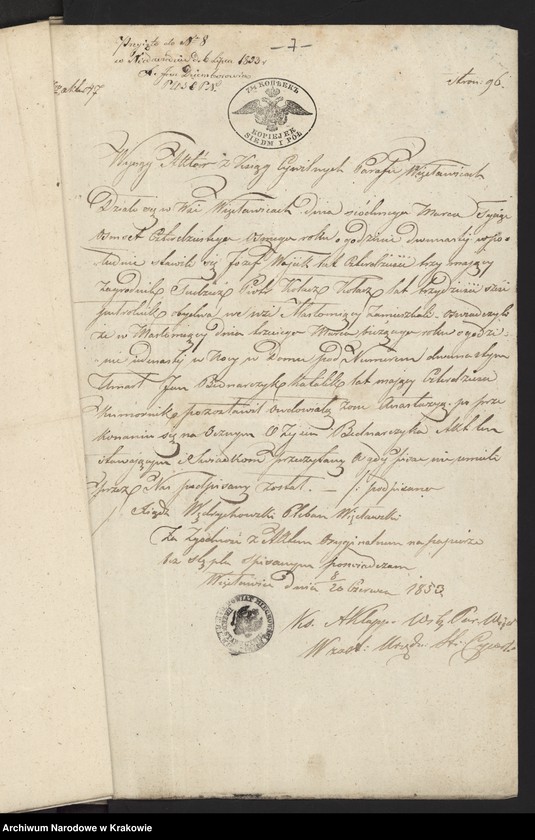 Przyięto do Nr 8
w dnia 6 Lipca 1853 r
Jan
— 7 —
Stron: 96
7½ КОПѢЕКЪ
KOPIEJEK
SIEDM I PÓŁ
Wypis Aktów z Xiąg Cywilnych Parafii Więcławicach
Działo się w Wsi Więcławicach dnia siódmego Marca Tysiąc
Osmset Czterdziestego Osmego roku o godzinie dwunastej w po-
łudnie stawili się Józef Wójcik lat Czterdzieści trzy mający
zagrodnik tudzież Piotr Kołacz Kołacz lat trzydzieści
obydwa we wsi zamieszkali oświadczyli
że w dnia trzeciego Marca bieżącego roku o godzi-
nie w Nocy w Domu pod Numerem dwunastym
Umarł Jan Bednarczyk Katolik lat mający Czterdzieści
Kumornik pozostawił owdowiałą żonę po prze-
konaniu się naocznym o Zejściu Bednarczyka Akt ten
stawającym i Świadkom przeczytany a gdy pisać nie umieli
przez Nas podpisany został. — /: podpisano
Xiądz Pleban Więcławski
Za Zgodność z Aktem Oryginalnym na papierze
bez stępla spisanym poświadczam
Więcławice dnia 8/20 Czerwca 1853.
Ks.
Urzędn. St: Cywil
Archiwum Narodowe w Krakowie